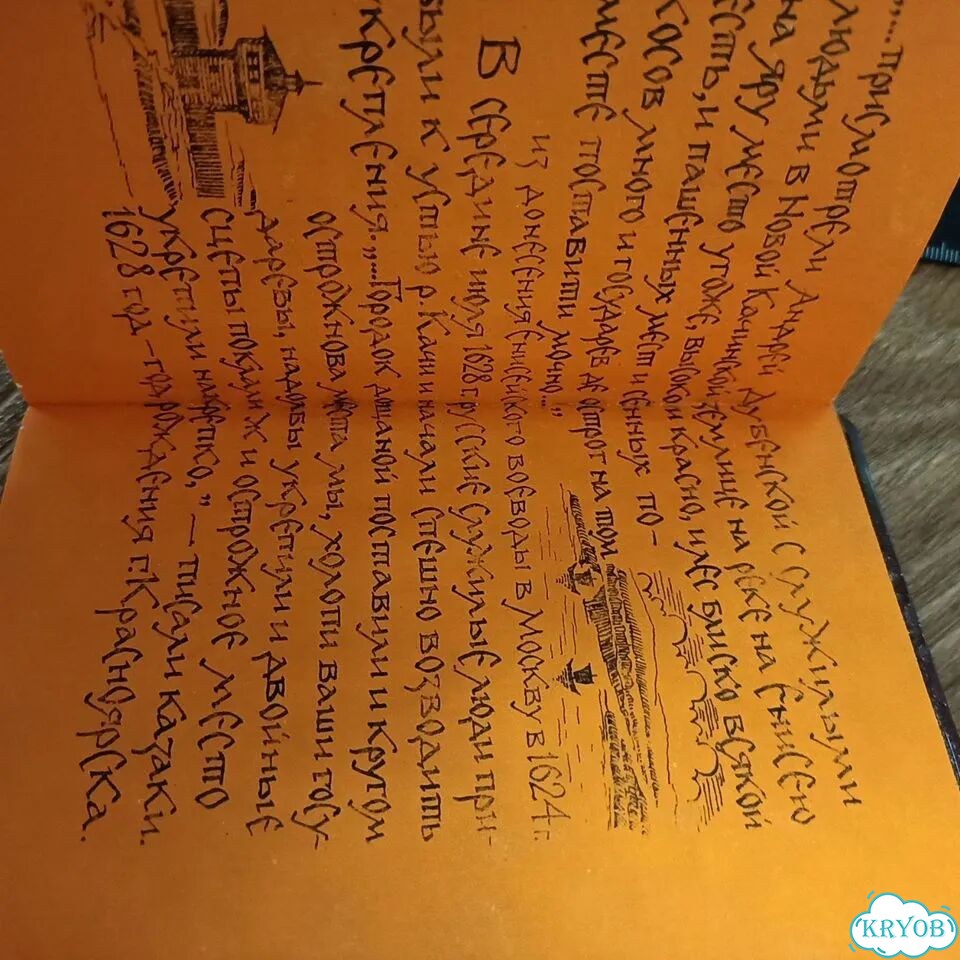 „...присмотрели Андрей Дубенской с служилыми
людьми в Новой Качинской землице на реке на Енисею
на Яру место угоже, высоко и красно, и лес блиско всякой
есть, и пашенных мест и сенных по-
косов много и государев де острог на том
месте поставити мочно..."
из донесения енисейского воеводы в Москву в 1624 г.
В середине июля 1628 г русские служилые люди при-
были к устью р. Качи и начали спешно возводить
укрепления. „...Городок дощаной поставили и кругом
острожнова места мы, холопи ваши госу-
даревы, надолбы укрепили и двойные
сцепы покладж и острожное место
укрепили накрепко," — писали казаки.
1628 год - год рождения г. Красноярска.
KRYOB